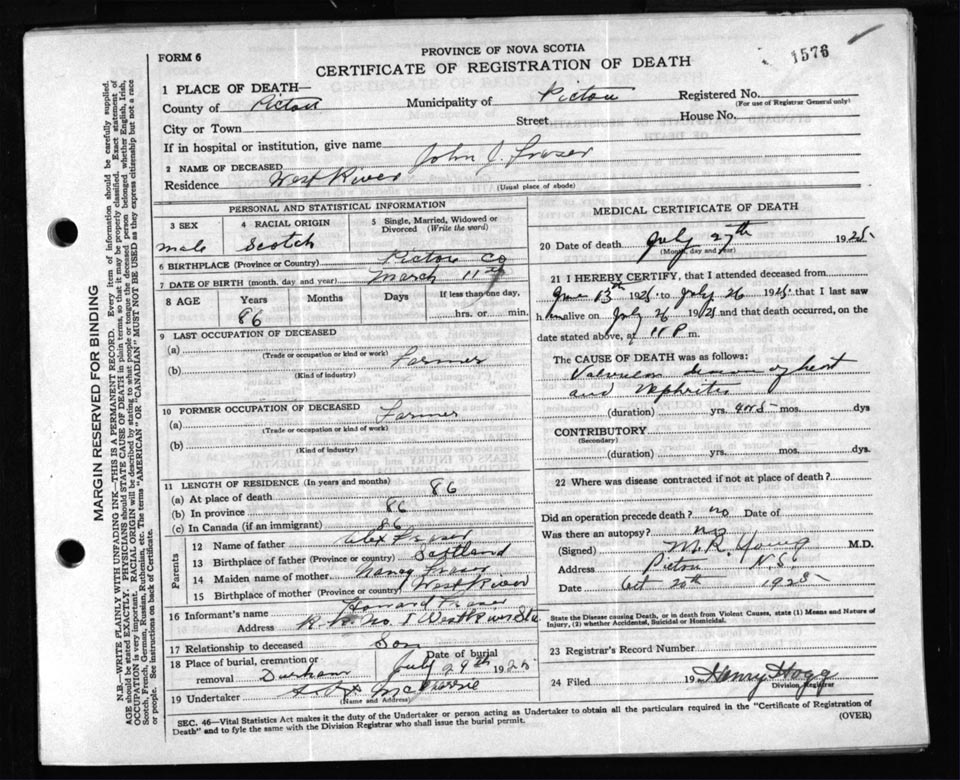 1576
FORM 6
PROVINCE OF NOVA SCOTIA
CERTIFICATE OF REGISTRATION OF DEATH
1 PLACE OF DEATH—
County of Pictou Municipality of Pictou Registered No.
(For use of Registrar General only)
City or Town Street House No.
If in hospital or institution, give name
2 NAME OF DECEASED John J. Fraser
Residence West River
(Usual place of abode)
PERSONAL AND STATISTICAL INFORMATION
3 SEX 4 RACIAL ORIGIN 5 Single, Married, Widowed or Divorced (Write the word)
male Scotch
6 BIRTHPLACE (Province or Country) Pictou Co
7 DATE OF BIRTH (month, day and year) March 11th
8 AGE Years Months Days If less than one day,
86 hrs. or min.
9 LAST OCCUPATION OF DECEASED
(a)
(Trade or occupation or kind or work)
(b) Farmer
(Kind of industry)
10 FORMER OCCUPATION OF DECEASED
(a) Farmer
(Trade or occupation or kind of work)
(b)
(Kind of industry)
11 LENGTH OF RESIDENCE (In years and months)
(a) At place of death 86
(b) In province 86
(c) In Canada (if an immigrant) 86
Parents
12 Name of father Alex Fraser
13 Birthplace of father (Province or country) Scotland
14 Maiden name of mother Nancy Fraser
15 Birthplace of mother (Province or country) West River
16 Informant's name Howard Fraser
Address R.R. No. 1 West River Sta
17 Relationship to deceased Son
18 Place of burial, cremation or removal Durham Date of burial July 29th 1925
19 Undertaker
(Name and Address)
MEDICAL CERTIFICATE OF DEATH
20 Date of death July 27th 1925
(Month, day and year)
21 I HEREBY CERTIFY, that I attended deceased from
June 13th 1925 to July 26 1925 that I last saw
him alive on July 26 1925 and that death occurred, on
date stated above, at 11 P m.
The CAUSE OF DEATH was as follows:
Valvular disease of heart
and Nephritis
(duration) yrs. mos. dys
CONTRIBUTORY
(Secondary)
(duration) yrs. mos. dys.
22 Where was disease contracted if not at place of death?
Did an operation precede death? no Date of
Was there an autopsy? no
(Signed) M. R. Young M.D.
Address Pictou N.S.
Date Oct 20th 1925
State the Disease causing Death, or in death from Violent Causes, state (1) Means and Nature of
Injury, (2) whether Accidental, Suicidal or Homicidal.
23 Registrar's Record Number
24 Filed 19 Henry Hogg
Division Registrar
SEC. 46—Vital Statistics Act makes it the duty of the Undertaker or person acting as Undertaker to obtain all the particulars required in the "Certificate of Registration of
Death" and to fyle the same with the Division Registrar who shall issue the burial permit. (OVER)
MARGIN RESERVED FOR BINDING
N.B.—WRITE PLAINLY WITH UNFADING INK—THIS IS A PERMANENT RECORD. Every item of information should be carefully supplied.
AGE should be stated EXACTLY. PHYSICIANS should STATE CAUSE OF DEATH in plain terms, so that it may be properly classified. Exact statement of
OCCUPATION is very important. RACIAL ORIGIN will be described by stating to what people or tongue the deceased person belonged whether English, Irish,
Scotch, French, German, Russian, Ruthenian, etc. The terms "AMERICAN" or "CANADIAN" MUST NOT BE USED as they express citizenship but not a race
or people. See instructions on back of Certificate.